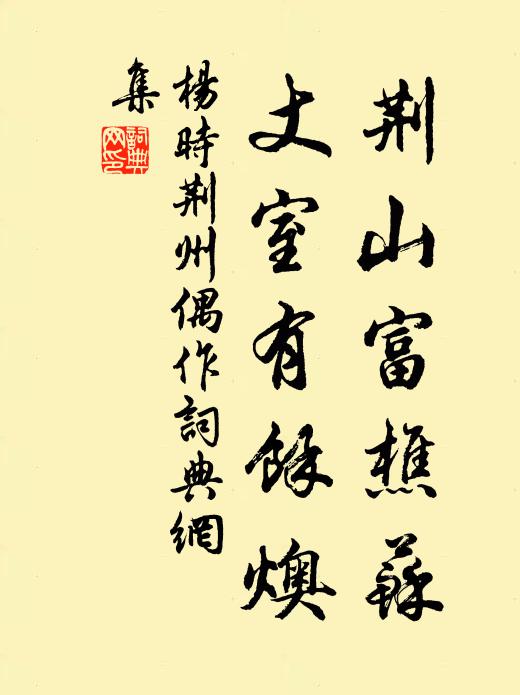 荆山富樵蘇
丈室有餘燠
楊時荆州偶作詞典網
集
詞典
网印